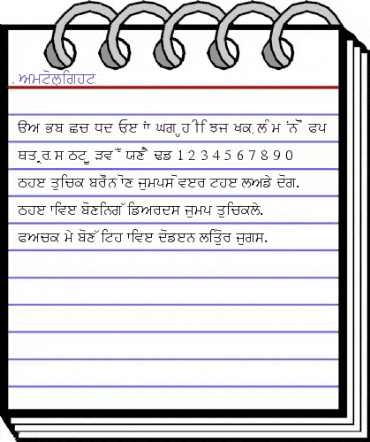 . ਅਮਟੋਲਗਿਹਟ
ੳਅ ਭਬ ਛਚ ਧਦ ਓੲ ਾਂ ਘਗ ੁਹ ੀਿ ਝਜ ਖਕ ਲ਼ ੰਮ ਂਨ ੌੋ ਫਪ
ਥਤ ੍ਰ ਸ਼ਸ ਠਟ ੂੁ ੜਵ ੱਂ ਯਣ ੈੇ ਢਡ 1 2 3 4 5 6 7 8 9 0
ਠਹੲ ਤੁਚਿਕ ਬਰੌਨ ੋਣ ਜੁਮਪਸ ੋਵੲਰ ਟਹੲ ਲਅਡੇ ਦੋਗ.
ਠਹੲ ਾਵਿੲ ਬੋਣਨਿਗੱ ਡਿਅਰਦਸ ਜੁਮਪ ਤੁਚਿਕਲੇ.
ਫਅਚਕ ਮੇ ਬੋਣੱ ਟਿਹ ਾਵਿੲ ਦੋਡੲਨ ਲਤਿੁੋਰ ਜੁਗਸ.